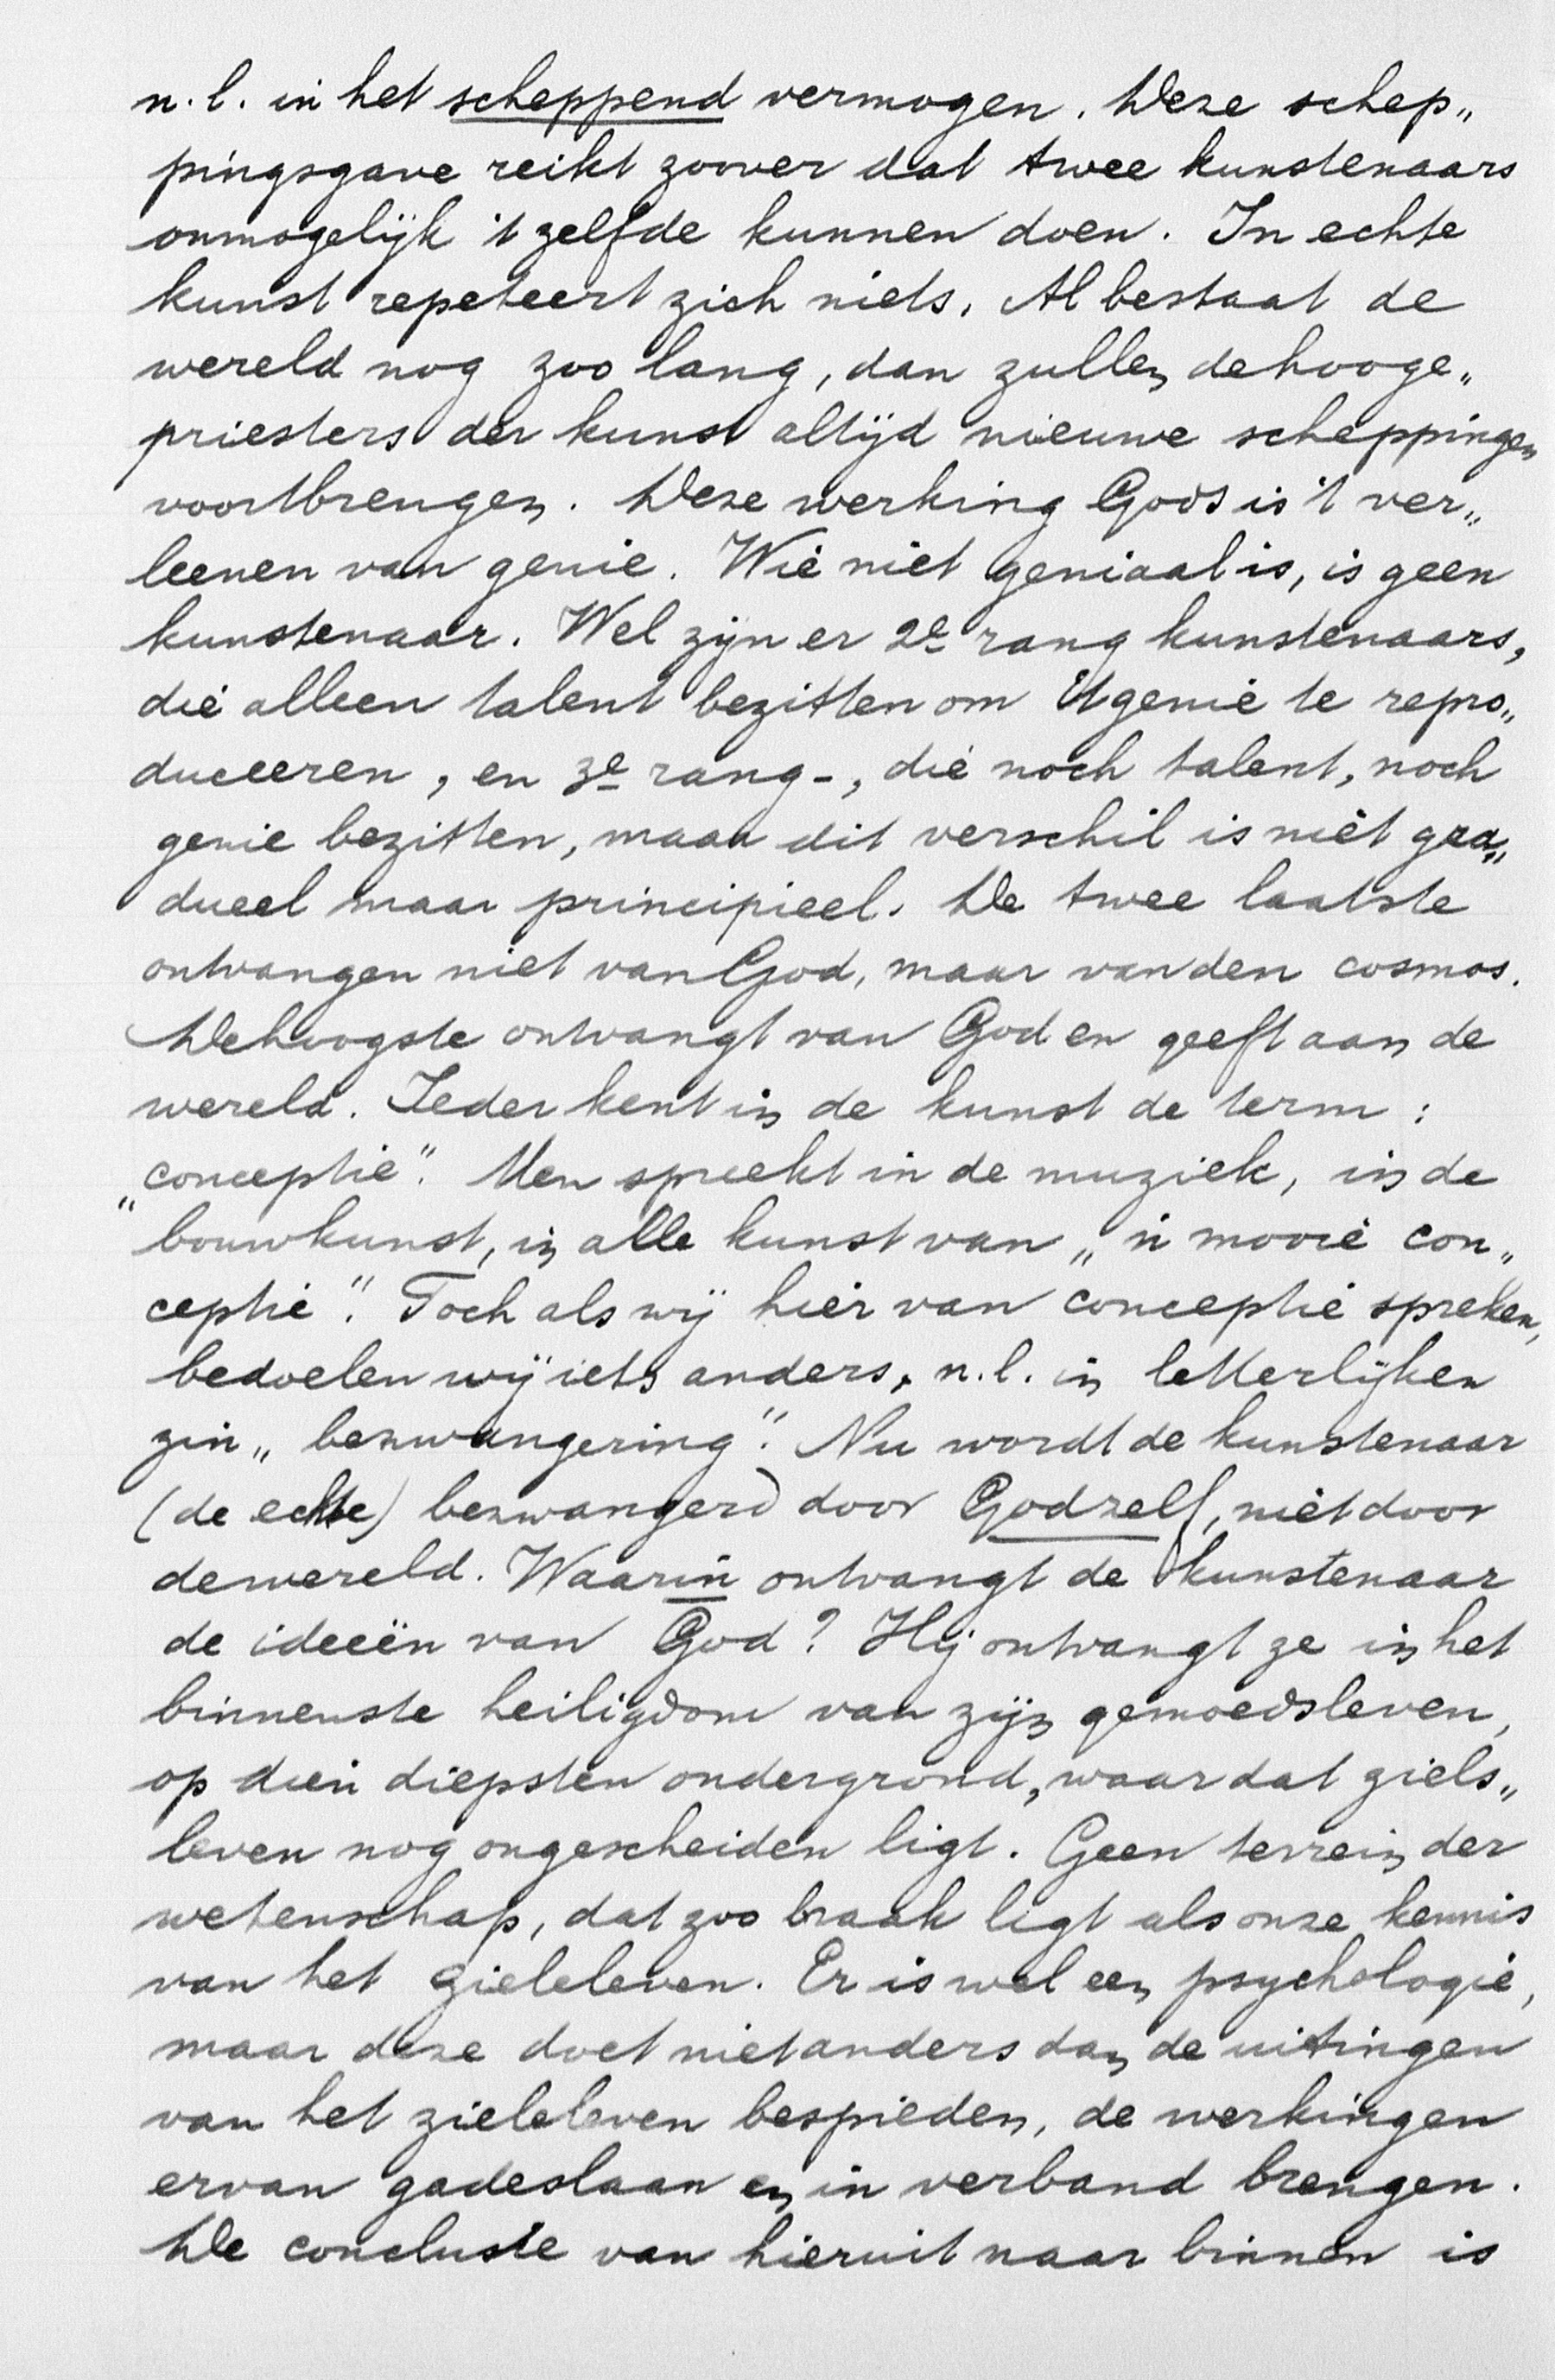 n.l. in het scheppend vermogen. Deze schep„
pingsgave reikt zoover dat twee kunstenaars
onmogelijk 't zelfde kunnen doen. In echte
kunst repeteert zich niets. Al bestaat de
wereld nog zoo lang, dan zullen de hooge„
priesters der kunst altijd nieuwe scheppingen
voortbrengen. Deze werking Gods is 't ver„
leenen van genie. Wie niet geniaal is, is geen
kunstenaar. Wel zijn er 2e rang kunstenaars,
die alleen talent bezitten om 't genie te repro„
duceeren, en 3e rang-, die noch talent, noch
genie bezitten, maar dit verschil is niet gra„
dueel maar principieel. De twee laatste
ontvangen niet van God, maar van den cosmos.
De hoogste ontvangt van God en geeft aan de
wereld. Ieder kent in de kunst de term:
„conceptie". Men spreekt in de muziek, in de
bouwkunst, in alle kunst van „'n mooie con„
ceptie". Toch als wij hier van conceptie spreken,
bedoelen wij iets anders, n.l. in letterlijken
zin „bezwangering". Nu wordt de kunstenaar
(de echte) bezwangerd door God zelf, niet door
de wereld. Waarin ontvangt de kunstenaar
de ideeën van God? Hij ontvangt ze in het
binnenste heiligdom van zijn gemoedsleven,
op dien diepsten ondergrond, waar dat ziels„
leven nog ongescheiden ligt. Geen terrein der
wetenschap, dat zoo braak ligt als onze kennis
van het zieleleven. Er is wel een psychologie,
maar deze doet niet anders dan de uitingen
van het zieleleven bespieden, de werkingen
ervan gadeslaan en in verband brengen.
De conclusie van hieruit naar binnen is